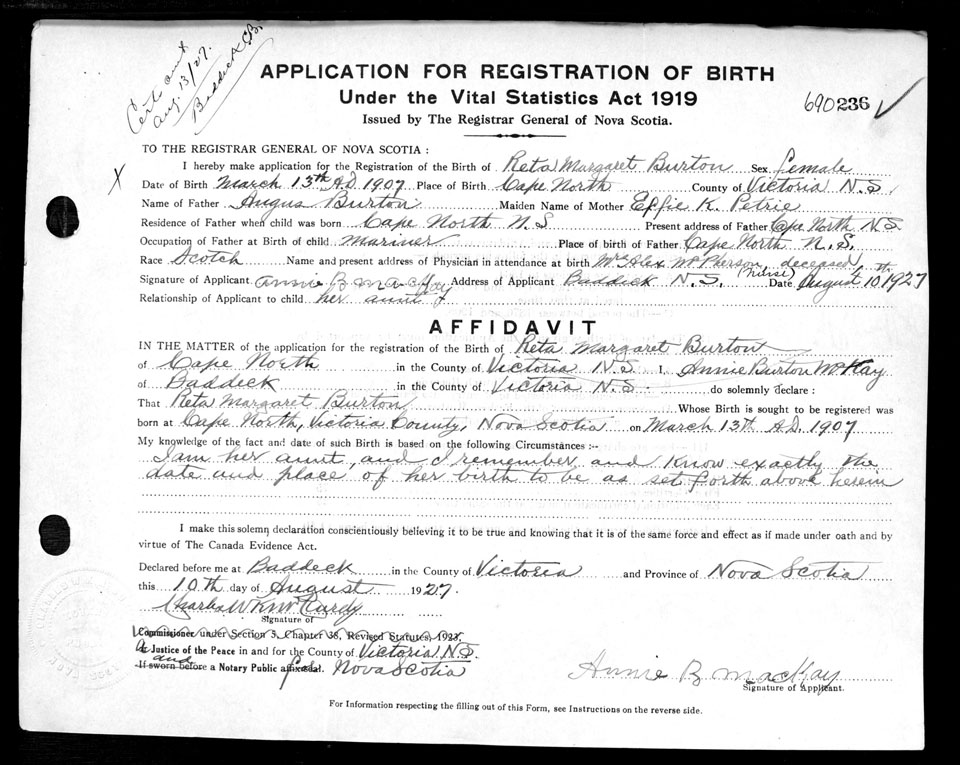 Cert. aunt
Aug. 13/27.
Baddeck C.B.
APPLICATION FOR REGISTRATION OF BIRTH
Under the Vital Statistics Act 1919
Issued by The Registrar General of Nova Scotia.
690236
TO THE REGISTRAR GENERAL OF NOVA SCOTIA :
X
I hereby make application for the Registration of the Birth of Reta Margaret Burton Sex female
Date of Birth March 13th A.D. 1907 Place of Birth Cape North County of Victoria N.S.
Name of Father Angus Burton Maiden Name of Mother Effie K. Petrie
Residence of Father when child was born Cape North N.S Present address of Father Cape North N.S.
Occupation of Father at Birth of child mariner Place of birth of Father Cape North N.S.
Race Scotch Name and present address of Physician in attendance at birth Mrs Alex McPherson, deceased
(nurse)
Signature of Applicant Annie B MacKay Address of Applicant Baddeck N.S. Date August 10th 1927
Relationship of Applicant to child her aunt
AFFIDAVIT
IN THE MATTER of the application for the registration of the Birth of Reta Margaret Burton
of Cape North in the County of Victoria N.S I, Annie Burton McKay
of Baddeck in the County of Victoria N.S. do solemnly declare :
That Reta Margaret Burton Whose Birth is sought to be registered was
born at Cape North, Victoria County, Nova Scotia on March 13th A.D. 1907
My knowledge of the fact and date of such Birth is based on the following Circumstances :-
I am her aunt, and I remember and know exactly the
date and place of her birth to be as set forth above herein
I make this solemn declaration conscientiously believing it to be true and knowing that it is of the same force and effect as if made under oath and by
virtue of The Canada Evidence Act.
Declared before me at Baddeck in the County of Victoria and Province of Nova Scotia
this 10th day of August 1927.
Charles W K McCurdy
Signature of
Commissioner under Section 3, Chapter 38, Revised Statutes, 1923.
A Justice of the Peace in and for the County of Victoria N.S.
and
If sworn before a Notary Public affix seal. Nova Scotia
Annie B MacKay
Signature of Applicant.
For Information respecting the filling out of this Form, see Instructions on the reverse side.